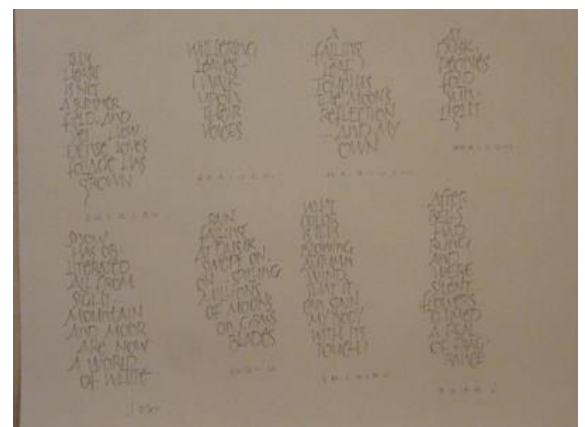 THIS
HOUSE
IS NET
A SUMMER
FIELD AND
YET HOW
DENSE LOVES
FOLIAGE HAS
GROWN
WILDERING
LEAVES
I WALK
UPON
THEIR
VOICES
A
FALLING
LEAF
TOUCHES
THE MOON'S
REFLECTION
AND MY
OWN
AT
DUSK
BECOMES
COLD
SUN-
LIGHT
SNOW
HAS OB-
LITERATED
ALL FROM
SIGHT
MOUNTAIN
AND MOOR
ARE NOW
A WORLD
OF WHITE
JOSO
RAIN
FALLING
AT DUSK IS
SWEPT ON
MILLIONS
OF MOONS
ON GRASS
BLADES
WHAT
COLOR
IS THIS
BLOWING
AUTUMN
WIND
THAT IT
CAN STAIN
MY BODY
WITH ITS
TOUCH?
AFTER
BELLS
HAD
RUNG
AND
WERE
SILENT
FLOWERS
CHIMED
A PEAL
OF FRAG-
RANCE